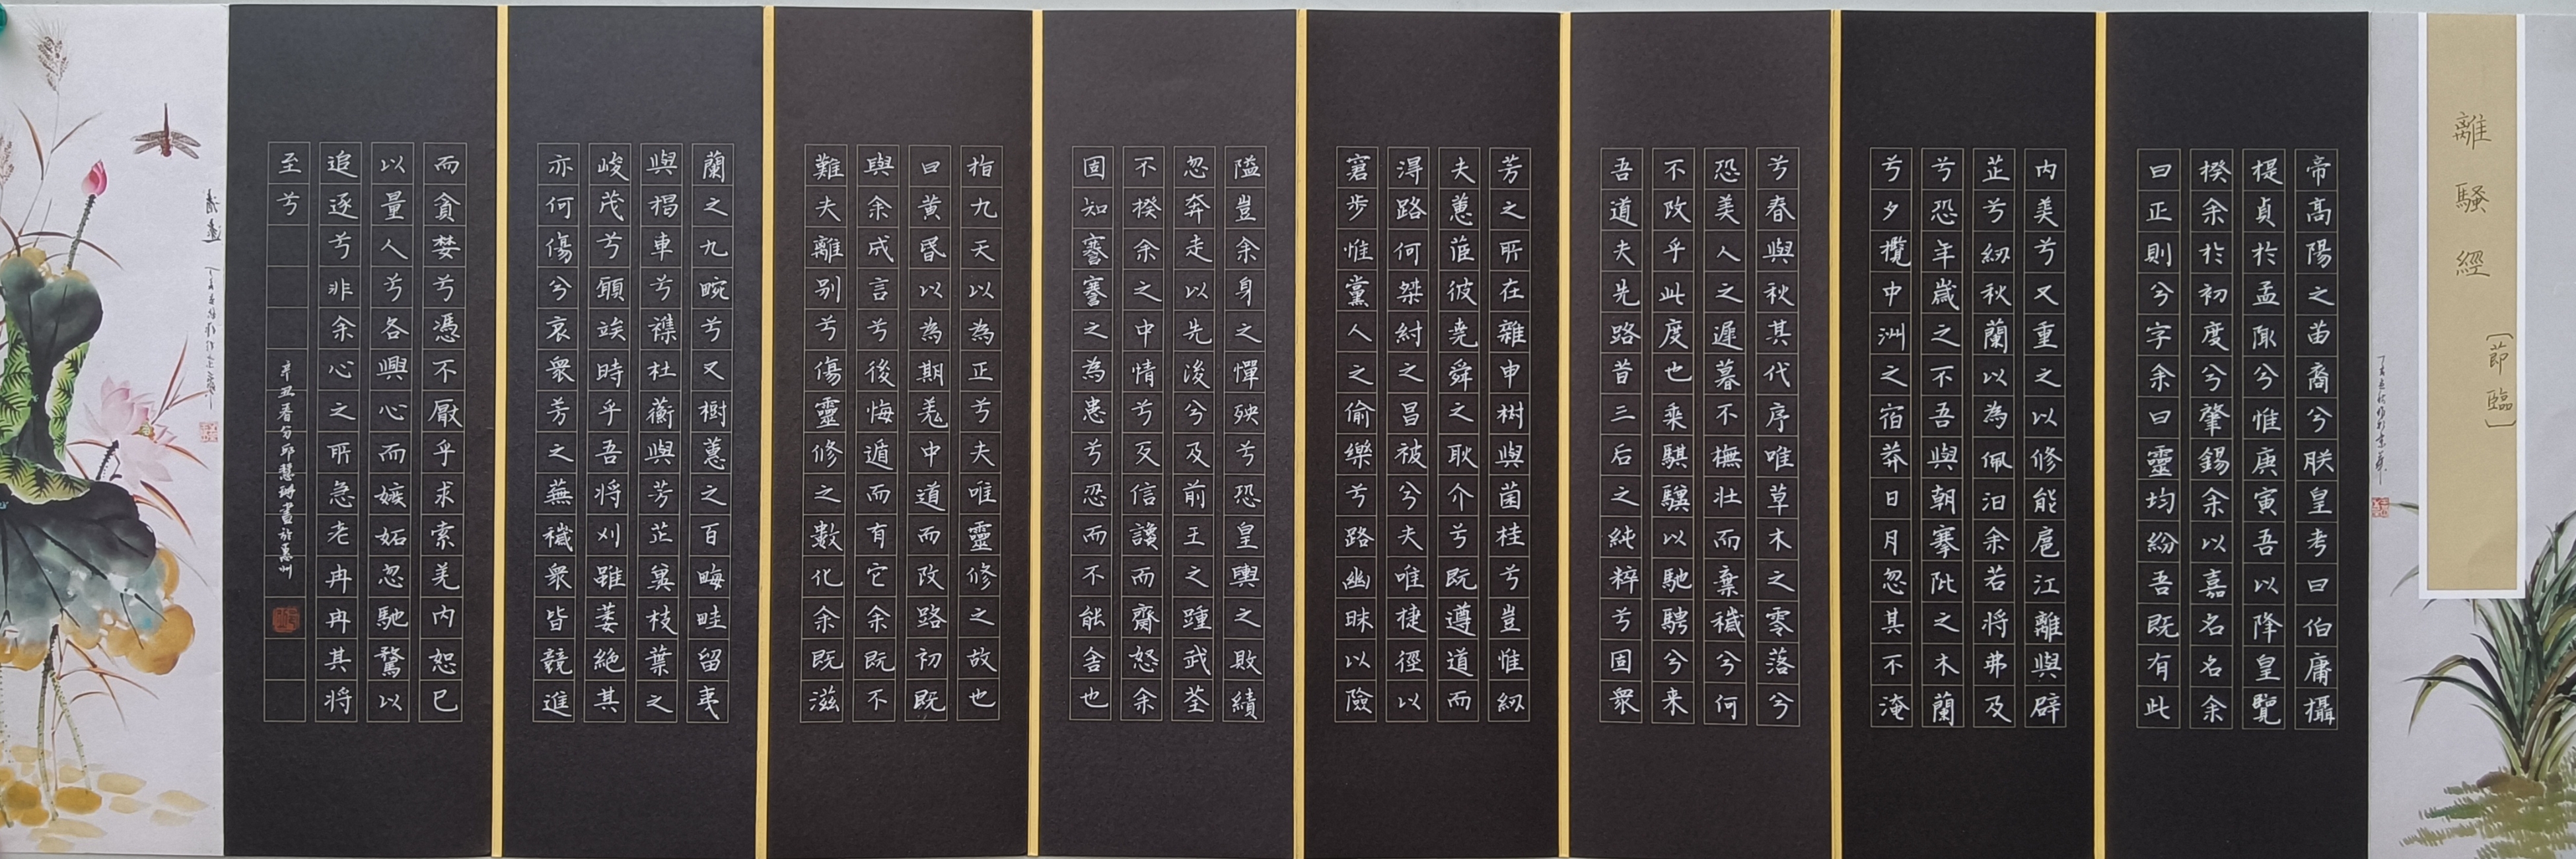 離騷經
〔節臨〕
帝高陽之苗裔兮朕皇考曰伯庸攝
提貞於孟陬兮惟庚寅吾以降皇覽
揆余於初度兮肇錫余以嘉名名余
曰正則兮字余曰靈均紛吾既有此
内美兮又重之以修能扈江離與辟
芷兮紉秋蘭以為佩汨余若将弗及
兮恐年歲之不吾與朝搴阰之木蘭
兮夕攬中洲之宿莽日月忽其不淹
兮春與秋其代序唯草木之零落兮
恐美人之遲暮不撫壮而棄穢兮何
不改乎此度也乘騏驥以馳騁兮来
吾道夫先路昔三后之純粹兮固衆
芳之所在雜申樹與菌桂兮豈惟紉
夫蕙茝彼堯舜之耿介兮既遵道而
得路何桀紂之昌被兮夫唯捷徑以
窘步惟黨人之偷樂兮路幽昧以險
隘豈余身之憚殃兮恐皇輿之敗績
忽奔走以先後兮及前王之踵武荃
不揆余之中情兮反信讒而齋怒余
固知謇謇之為患兮忍而不能舍也
指九天以為正兮夫唯靈修之故也
曰黄昏以為期羌中道而改路初既
與余成言兮後悔遁而有它余既不
難夫離別兮傷靈修之數化余既滋
蘭之九畹兮又樹蕙之百畮畦留夷
與揭車兮襍杜蘅與芳芷冀枝葉之
峻茂兮願竢時乎吾将刈雖萎絶其
亦何傷兮哀衆芳之蕪穢衆皆競進
而貪婪兮憑不厭乎求索羌内恕己
以量人兮各興心而嫉妬忽馳騖以
追逐兮非余心之所急老冉冉其将
至兮
辛丑春分邱慧珊書於惠州
清趣